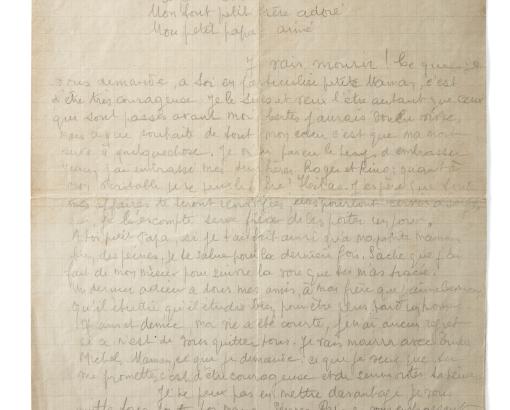 Mon tout petit frère adoré
Mon petit papa aimé
Je vais mourir ! Ce que je
vous demande, à toi en particulier petite Maman, c'est
d'être très courageuse. Je le suis et veux l'être autant que ceux
qui sont passés avant moi. Certes j'aurais voulu vivre,
mais ce que je souhaite de tout mon cœur c'est que ma mort
serve à quelque chose. Je n'ai pas eu le temps d'embrasser
Jean, j'ai embrassé mes deux frères Roger et Rino; quant à
mon véritable je ne peux le faire hélas. J'espère que toutes
mes affaires te seront renvoyées, elles pourront servir à
je l'escompte sera fier de les porter un jour.
A toi petit Papa, si je t'ai fait ainsi qu'à ma petite Maman
des peines, je te salue pour la dernière fois. Sache que j'ai
fait de mon mieux pour suivre la voie que tu m'as tracée.
Un dernier adieu à tous mes amis, à mon frère que j'aime beaucoup
qu'il étudie qu'il étudie bien pour être plus tard un homme
17 ans et demie, ma vie a été courte, je n'ai aucun regret
si ce n'est de vous quitter tous. Je vais mourir avec
Michels. Maman, ce que je demande, ce que je veux que tu
me promettes, c'est d'être courageuse et de surmonter ta peine.
Je ne peux pas en mettre davantage je vous